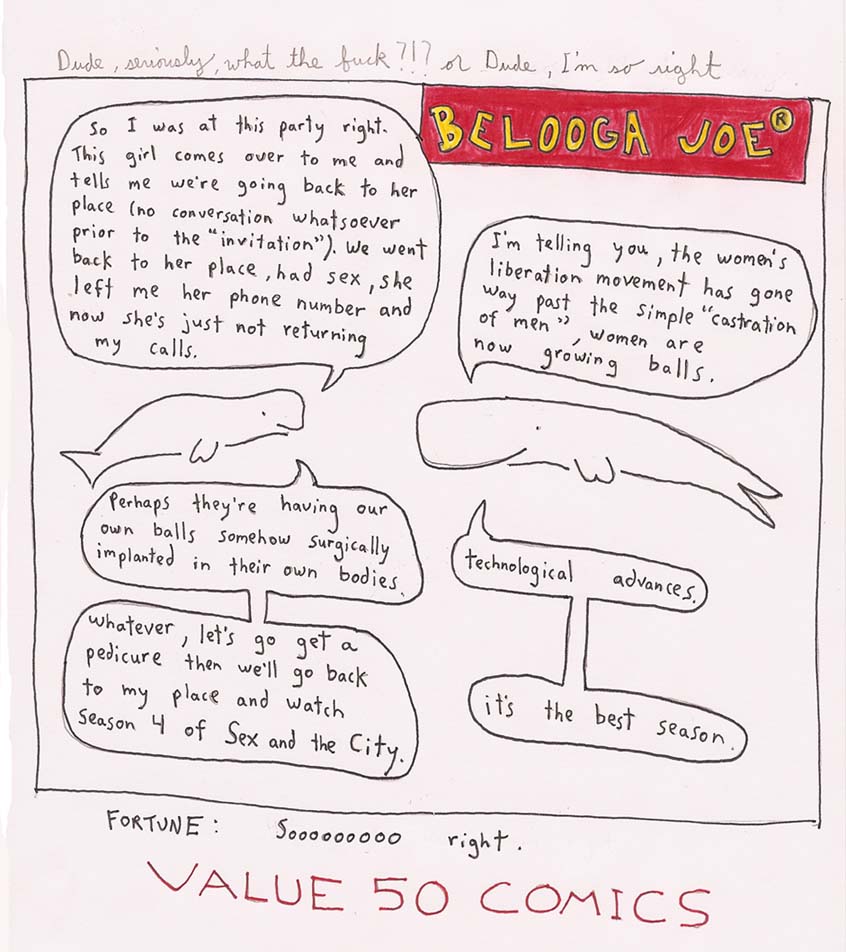 Dude, seriously, what the fuck?!? or Dude, I'm so right
BELOOGA JOE®
So I was at this party right.
This girl comes over to me and
tells me we're going back to her
place (no conversation whatsoever
prior to the "invitation"). We went
back to her place, had sex, she
left me her phone number and
now she's just not returning
my calls.
I'm telling you, the women's
liberation movement has gone
way past the simple "castration
of men", women are
now growing balls.
Perhaps they're having our
own balls somehow surgically
implanted in their own bodies.
technological advances.
whatever, let's go get a
pedicure then we'll go back
to my place and watch
Season 4 of Sex and the City.
it's the best season.
FORTUNE: Sooooooooo right.
VALUE 50 COMICS